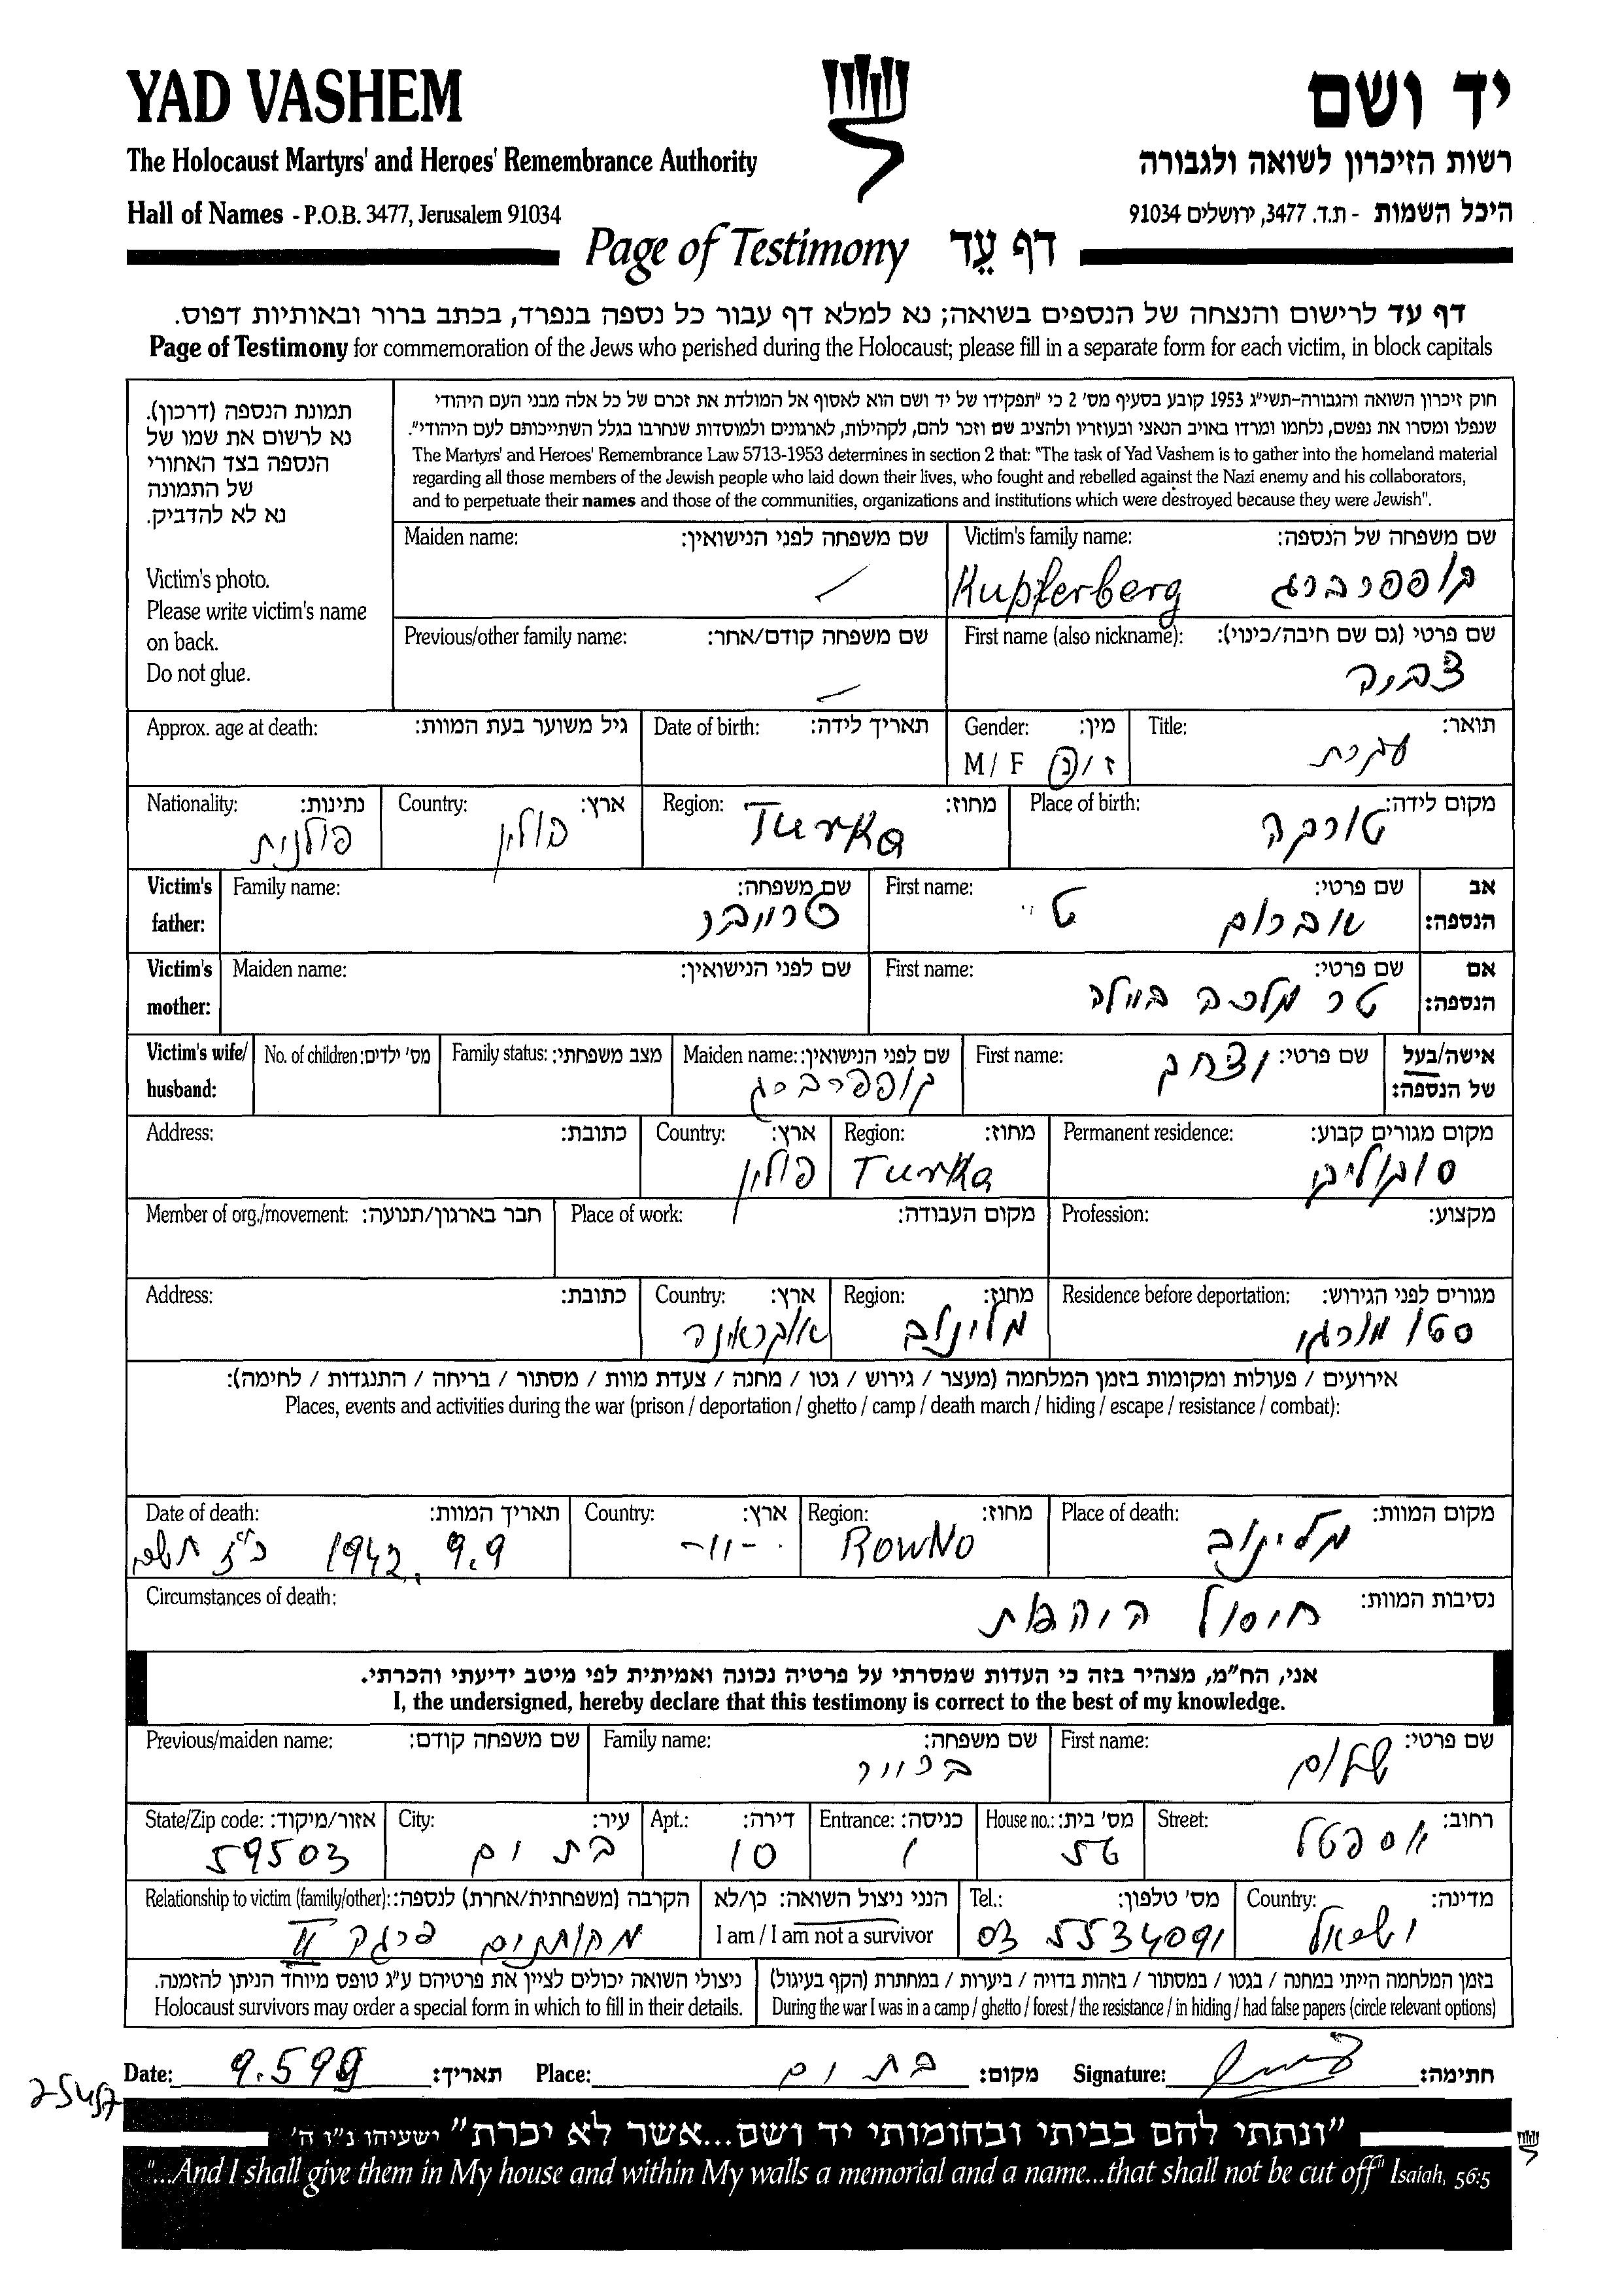 YAD VASHEM
יד ושם
The Holocaust Martyrs' and Heroes' Remembrance Authority
רשות הזיכרון לשואה ולגבורה
Hall of Names - P.O.B. 3477, Jerusalem 91034
היכל השמות - ת.ד. 3477, ירושלים 91034
Page of Testimony דף עֵד
דף עד לרישום והנצחה של הנספים בשואה; נא למלא דף עבור כל נספה בנפרד, בכתב ברור ובאותיות דפוס.
Page of Testimony for commemoration of the Jews who perished during the Holocaust; please fill in a separate form for each victim, in block capitals
תמונת הנספה (דרכון).
נא לרשום את שמו של
הנספה בצד האחורי
של התמונה
נא לא להדביק.
Victim's photo.
Please write victim's name
on back.
Do not glue.
חוק זיכרון השואה והגבורה-תשי"ג 1953 קובע בסעיף מס' 2 כי "תפקידו של יד ושם הוא לאסוף אל המולדת את זכרם של כל אלה מבני העם היהודי
שנפלו ומסרו את נפשם, נלחמו ומרדו באויב הנאצי ובעוזריו ולהציב שם וזכר להם, לקהילות, לארגונים ולמוסדות שנחרבו בגלל השתייכותם לעם היהודי".
The Martyrs' and Heroes' Remembrance Law 5713-1953 determines in section 2 that: "The task of Yad Vashem is to gather into the homeland material
regarding all those members of the Jewish people who laid down their lives, who fought and rebelled against the Nazi enemy and his collaborators,
and to perpetuate their names and those of the communities, organizations and institutions which were destroyed because they were Jewish".
Victim's family name: שם משפחה של הנספה:
Kupferberg קופפרברג
Maiden name: שם משפחה לפני הנישואין:
First name (also nickname): שם פרטי (גם שם חיבה/כינוי):
Previous/other family name: שם משפחה קודם/אחר:
Title: תואר:
Gender: מין:
M / F ז / נ
Date of birth: תאריך לידה:
Approx. age at death: גיל משוער בעת המוות:
Place of birth: מקום לידה:
טורקה
Region: מחוז:
Turka
Country: ארץ:
פולין
Nationality: נתינות:
פולנית
Victim's father: אב הנספה:
First name: שם פרטי:
אברהם
Family name: שם משפחה:
Victim's mother: אם הנספה:
First name: שם פרטי:
מלכה ביילה
Maiden name: שם לפני הנישואין:
Victim's wife/husband: אישה/בעל של הנספה:
First name: שם פרטי:
יצחק
Maiden name: שם לפני הנישואין:
קופפרברג
Family status: מצב משפחתי:
No. of children: מס' ילדים:
Permanent residence: מקום מגורים קבוע:
Region: מחוז:
Turka
Country: ארץ:
פולין
Address: כתובת:
Profession: מקצוע:
Place of work: מקום העבודה:
Member of org./movement: חבר בארגון/תנועה:
Residence before deportation: מגורים לפני הגירוש:
Region: מחוז:
מלינוב
Country: ארץ:
אוקראינה
Address: כתובת:
אירועים / פעולות ומקומות בזמן המלחמה (מעצר / גירוש / גטו / מחנה / צעדת מוות / מסתור / בריחה / התנגדות / לחימה):
Places, events and activities during the war (prison / deportation / ghetto / camp / death march / hiding / escape / resistance / combat):
Place of death: מקום המוות:
מלינוב
Region: מחוז:
Rowno
Country: ארץ:
-"-
Date of death: תאריך המוות:
9.9 1942
Circumstances of death: נסיבות המוות:
חוסול היהדות
אני, הח"מ, מצהיר בזה כי העדות שמסרתי על פרטיה נכונה ואמיתית לפי מיטב ידיעתי והכרתי.
I, the undersigned, hereby declare that this testimony is correct to the best of my knowledge.
First name: שם פרטי:
שלום
Family name: שם משפחה:
Previous/maiden name: שם משפחה קודם:
Street: רחוב:
House no.: מס' בית:
56
Entrance: כניסה:
1
Apt.: דירה:
10
City: עיר:
בת ים
State/Zip code: אזור/מיקוד:
59503
Country: מדינה:
ישראל
Tel.: מס' טלפון:
03 5534091
הנני ניצול השואה: כן/לא
I am / I am not a survivor
Relationship to victim (family/other): הקרבה (משפחתית/אחרת) לנספה:
מחותנים דרגה II
בזמן המלחמה הייתי במחנה / בגטו / במסתור / בזהות בדויה / ביערות / במחתרת (הקף בעיגול)
During the war I was in a camp / ghetto / forest / the resistance / in hiding / had false papers (circle relevant options)
ניצולי השואה יכולים לציין את פרטיהם ע"ג טופס מיוחד הניתן להזמנה.
Holocaust survivors may order a special form in which to fill in their details.
Date: 9.5.99 תאריך: Place: בת ים מקום: Signature: חתימה:
"ונתתי להם בביתי ובחומותי יד ושם...אשר לא יכרת" ישעיהו נ"ו ה'
"...And I shall give them in My house and within My walls a memorial and a name...that shall not be cut off" Isaiah, 56:5